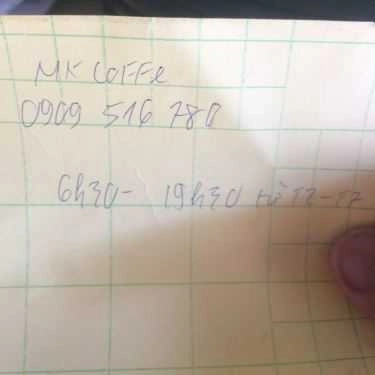 MK COFFE
0909 516 780
6h30 - 19h30 từ T2 - T7